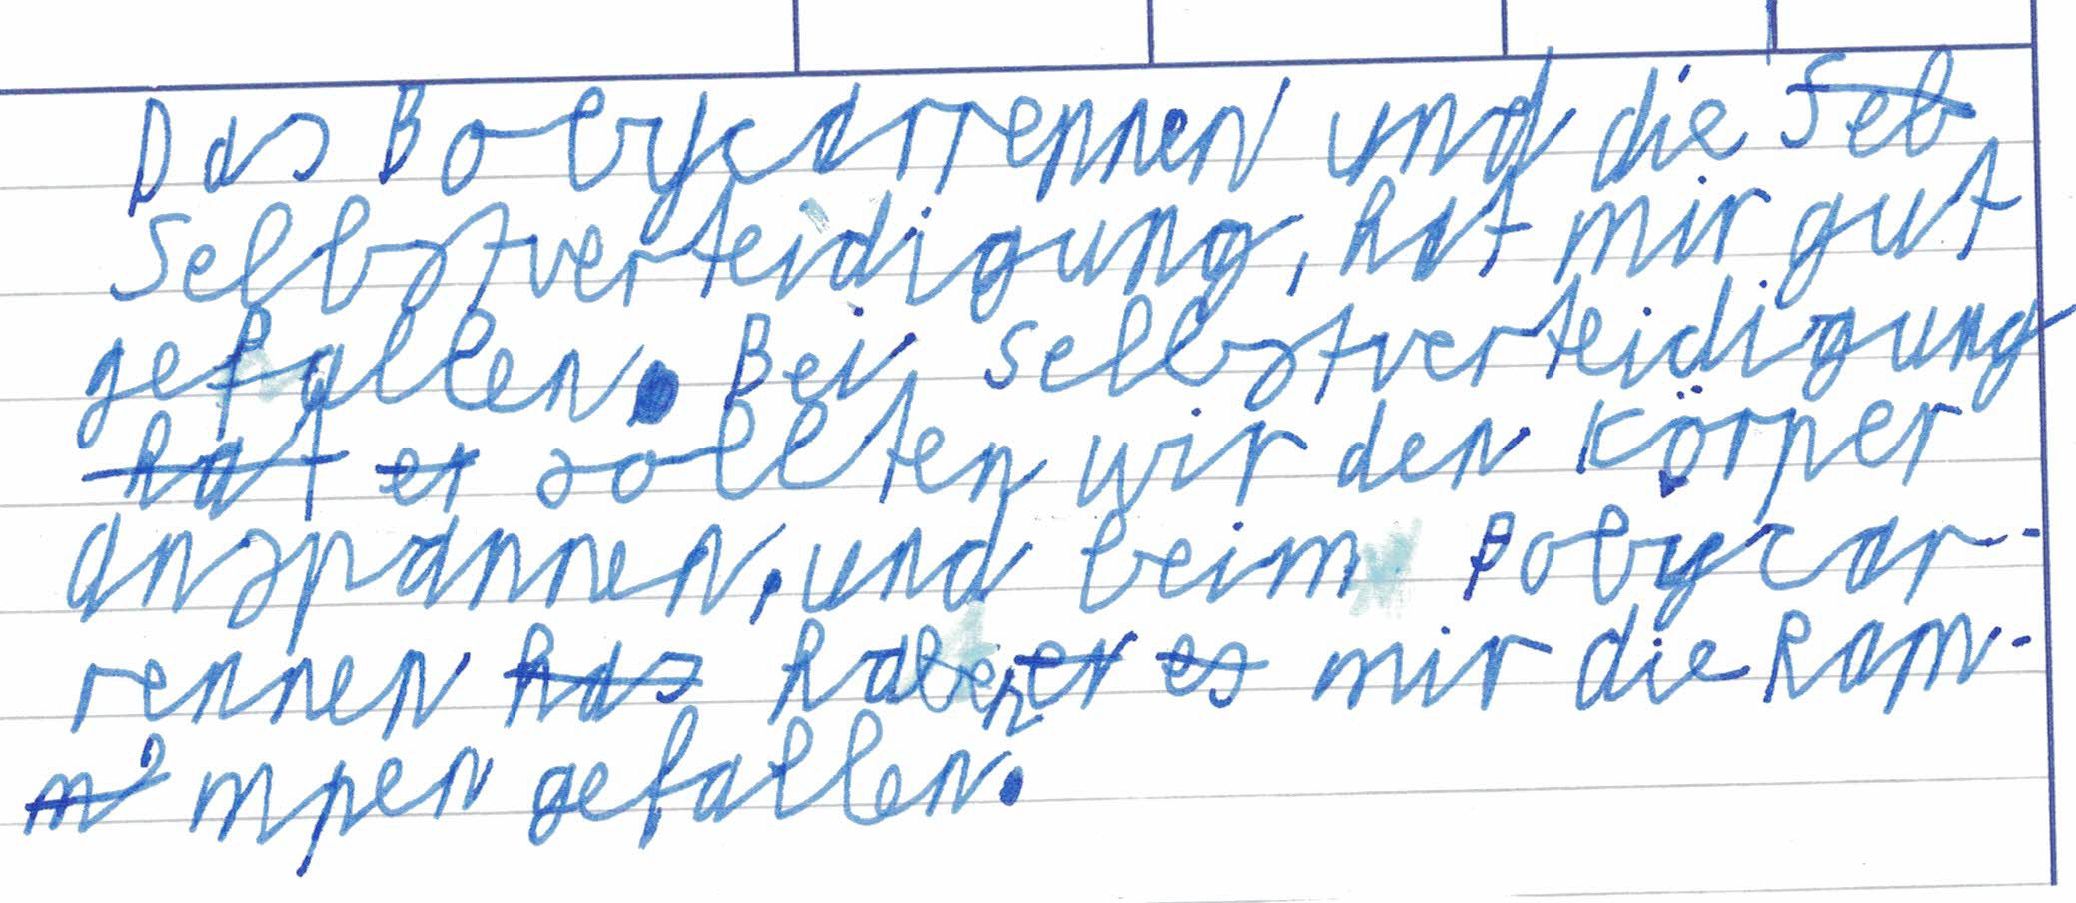 Das Bobycarrennen und die Seb
Selbstverteidigung, hat mir gut
gefallen. Bei Selbstverteidigung
hat er sollten wir den Körper
anspannen, und beim Bobycar-
rennen has haben er es mir die Ram-
m mpen gefallen.